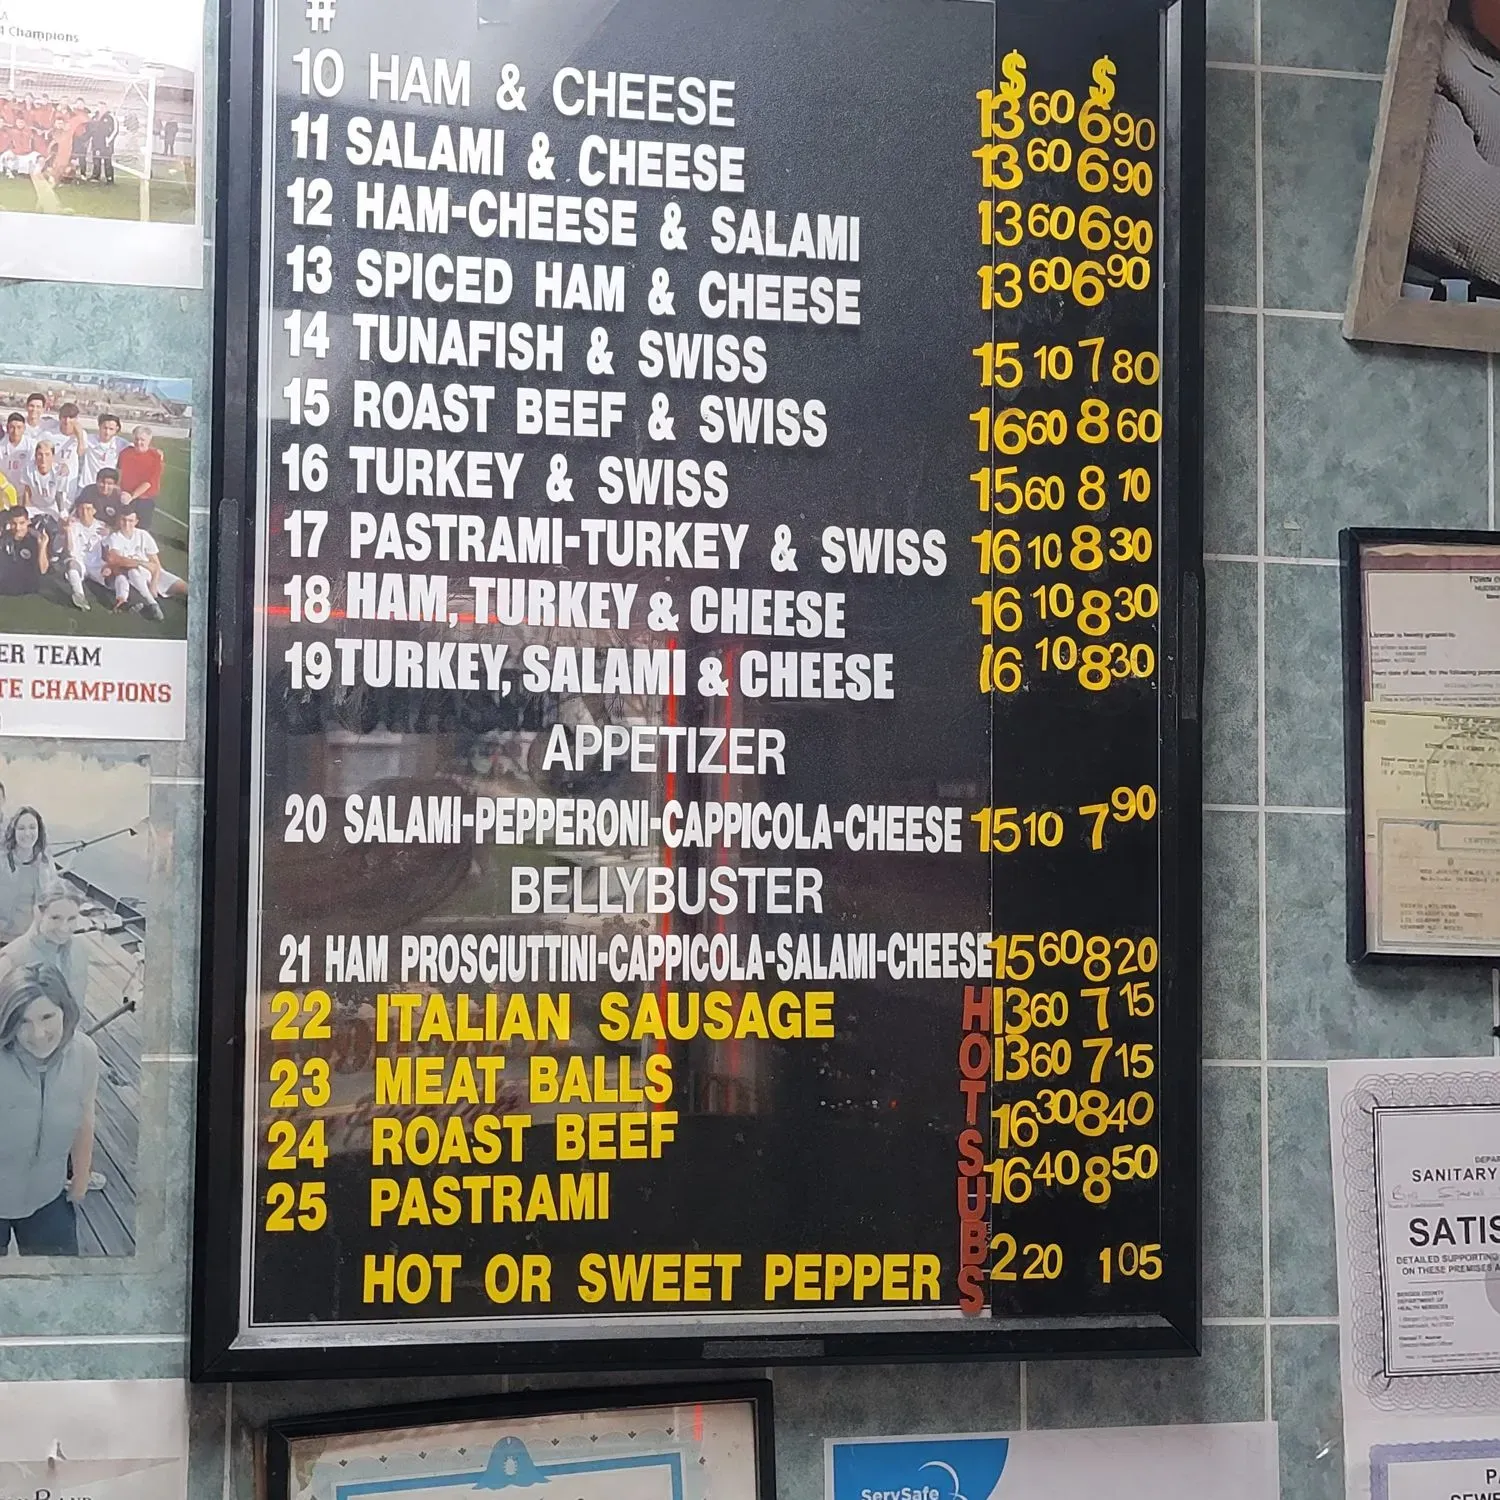 4 Champions
ER TEAM
TE CHAMPIONS
#
$ $
10 HAM & CHEESE 13 60 6 90
11 SALAMI & CHEESE 13 60 6 90
12 HAM-CHEESE & SALAMI 13 60 6 90
13 SPICED HAM & CHEESE 13 60 6 90
14 TUNAFISH & SWISS 15 10 7 80
15 ROAST BEEF & SWISS 16 60 8 60
16 TURKEY & SWISS 15 60 8 10
17 PASTRAMI-TURKEY & SWISS 16 10 8 30
18 HAM, TURKEY & CHEESE 16 10 8 30
19 TURKEY, SALAMI & CHEESE 16 10 8 30
APPETIZER
20 SALAMI-PEPPERONI-CAPPICOLA-CHEESE 15 10 7 90
BELLYBUSTER
21 HAM PROSCIUTTINI-CAPPICOLA-SALAMI-CHEESE 15 60 8 20
22 ITALIAN SAUSAGE 13 60 7 15
23 MEAT BALLS 13 60 7 15
24 ROAST BEEF 16 30 8 40
25 PASTRAMI 16 40 8 50
HOT OR SWEET PEPPER 2 20 1 05
HOT SUBS
SANITARY
SATIS
DETAILED SUPPORTING
ON THESE PREMISES A
ServSafe